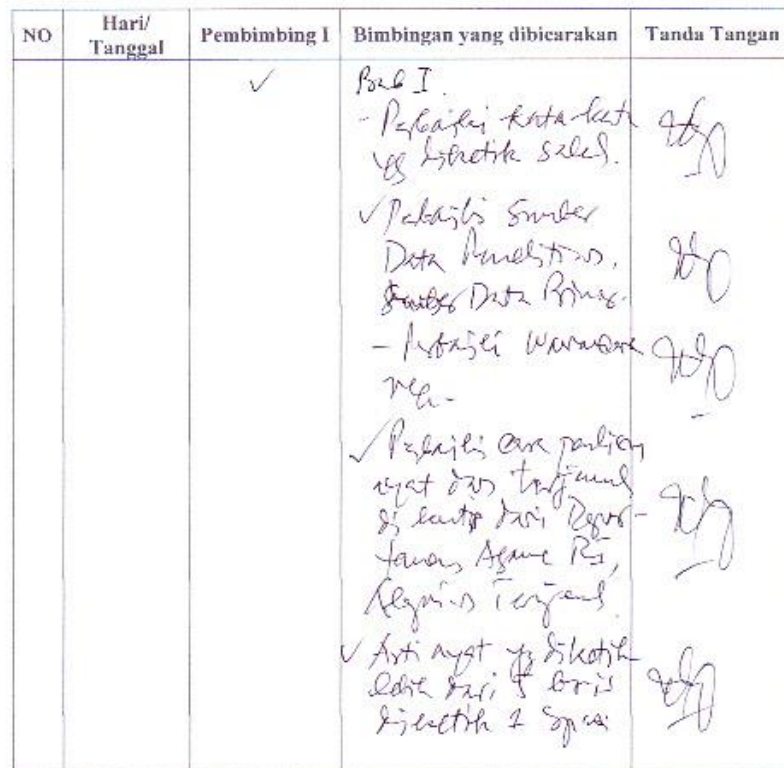 NO Hari/ Tanggal Pembimbing I Bimbingan yang dibicarakan Tanda Tangan
✓ Bab I.
- Perbaiki kata-kata
yg diketik salah.
✓ Perbaiki Sumber
Data Penelitian.
Sumber Data Primer.
- Perbaiki wawancara
✓ Perbaiki cara penulisan
ayat dan terjemah
di kutip dari Depar-
temen Agama RI,
Terjemah
✓ Arti ayat yg diketik
lebih dari 5 baris
diketik 1 spasi